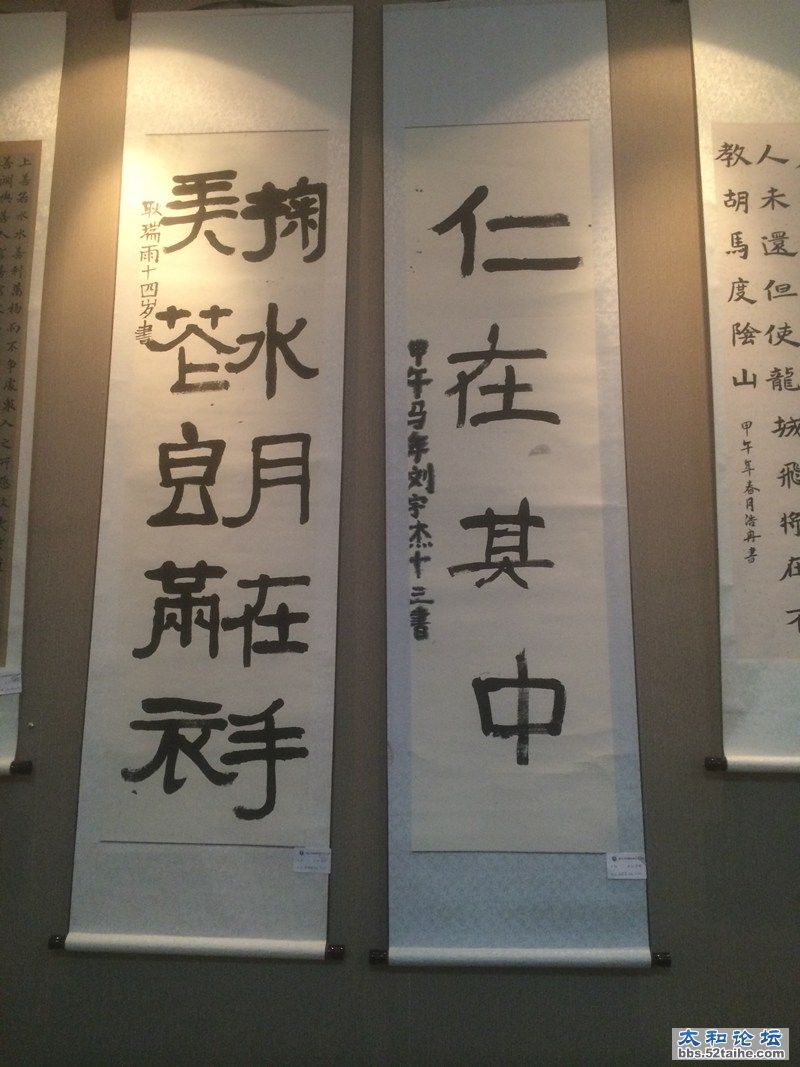 人未還但使龍城飛將在不
教胡馬度陰山
甲午年春月浩冉書
仁在其中
甲午马年刘宇杰十三書
掬水月在手
弄花香滿衣
耿瑞雨十四岁書
上善若水水善利萬物而不争處衆人之所惡故
太和论坛
bbs.52taihe.com